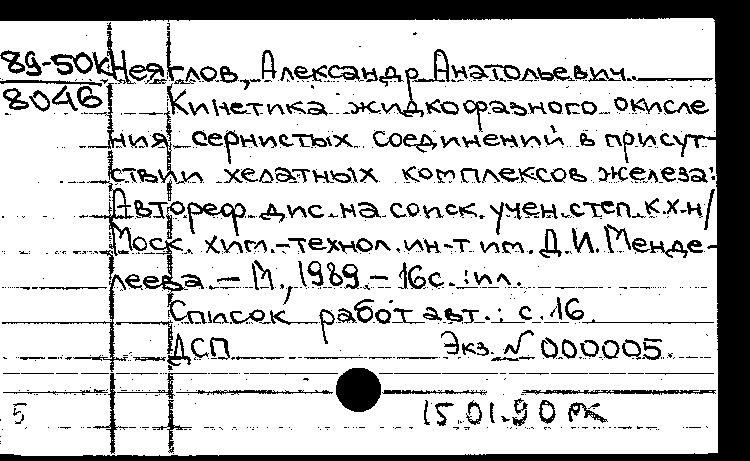 89-50к Неяглов, Александр Анатольевич.
8046 Кинетика жидкофазного окисле
ния сернистых соединений в присут-
ствии хелатных комплексов железа:
Автореф. дис. на соиск. учен. степ. к.х.н/
Моск. хим.-технол. ин-т им. Д.И. Менде-
леева. – М., 1989. – 16с. : ил.
Список работ авт.: с. 16.
ДСП Экз. № 000005.
5 15.01.90 РК